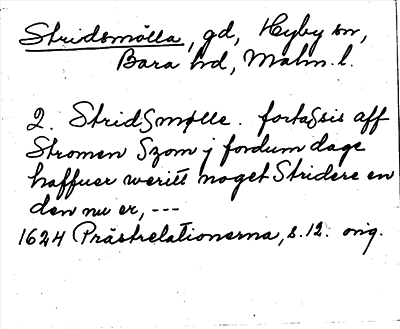 Stridsmölla, gd, Hyby sn,
Bara hd, Malm. l.
2. StridSmølle. fortaSsis aff
Stromen Szom j fordum dage
haffuer weritt noget Stridere en
den nu er, ---
1624 Prästrelationerna, s. 12. orig.